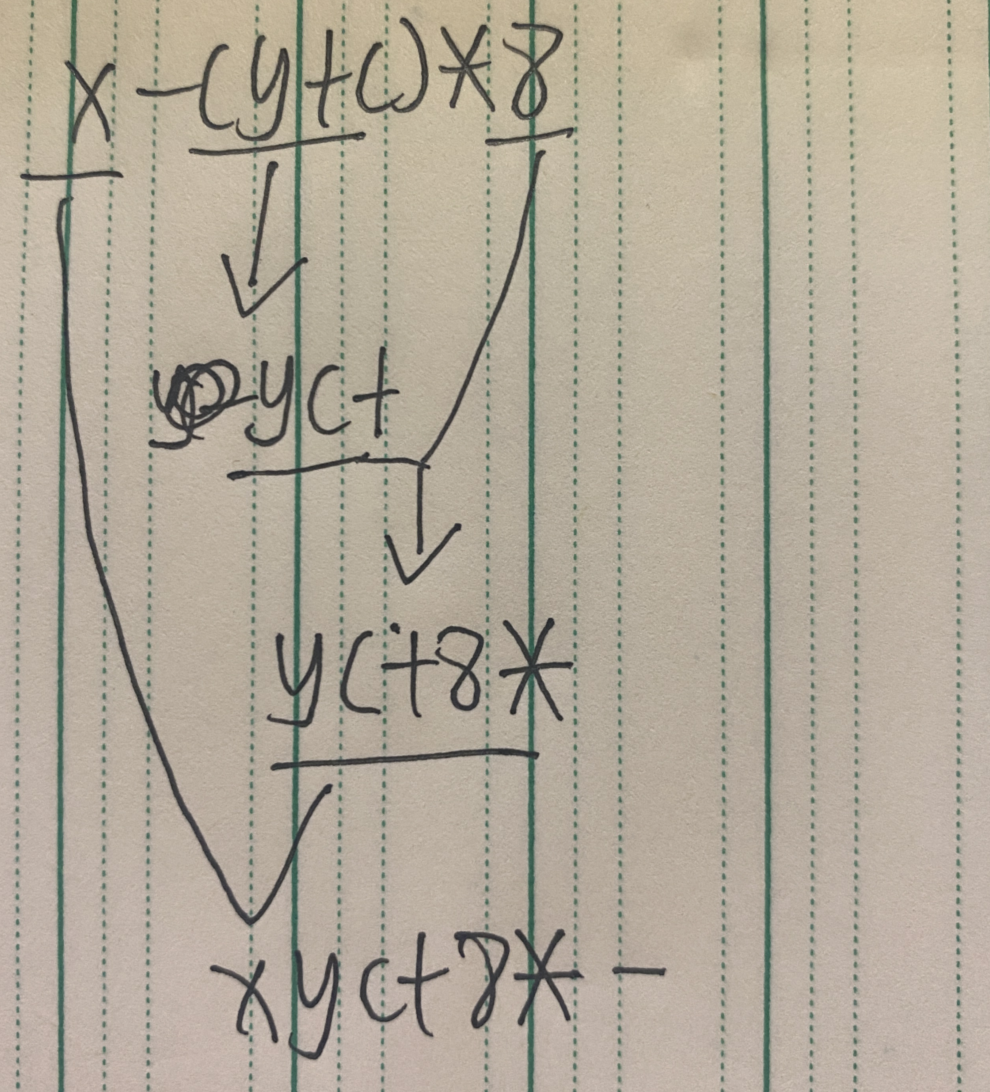 x-(y+c)*8
yc+
yc+8*
xyc+8*-